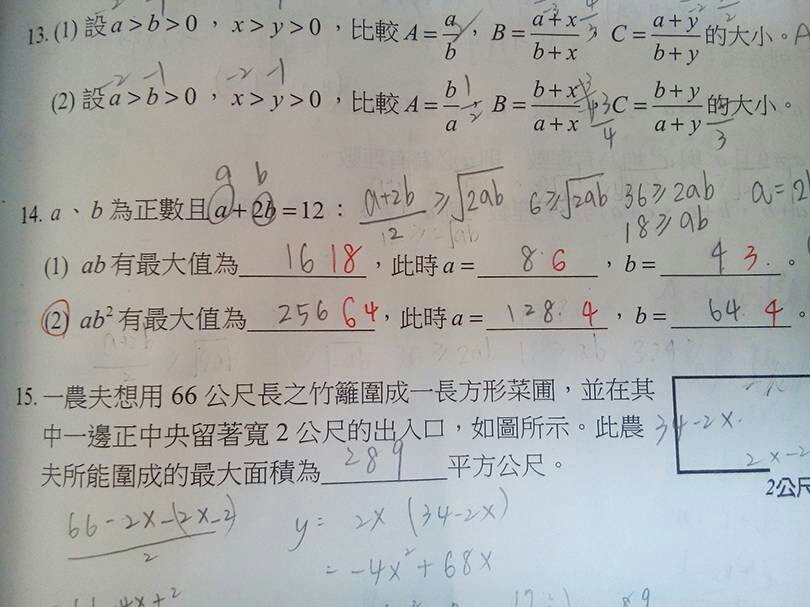 13. (1) 設 a > b > 0 , x > y > 0 , 比較 A = a/b , B = (a+x)/(b+x) C = (a+y)/(b+y) 的大小。A
(2) 設 a > b > 0 , x > y > 0 , 比較 A = b/a , B = (b+x)/(a+x) C = (b+y)/(a+y) 的大小。
a b
14. a、b 為正數且 a + 2b = 12 : (a+2b)/12 ≥ √2ab 6 ≥ √2ab 36 ≥ 2ab a = 2b
18 ≥ ab
(1) ab 有最大值為 16 18 , 此時 a = 8 6 , b = 4 3 。
(2) ab² 有最大值為 256 64 , 此時 a = 128 4 , b = 64 4 。
15. 一農夫想用 66 公尺長之竹籬圍成一長方形菜圃,並在其
中一邊正中央留著寬 2 公尺的出入口,如圖所示。此農
34-2x
夫所能圍成的最大面積為 289 平方公尺。
2x-2
2公尺
(66-2x-(2x-2))/2 y = 2x (34-2x)
= -4x² + 68x